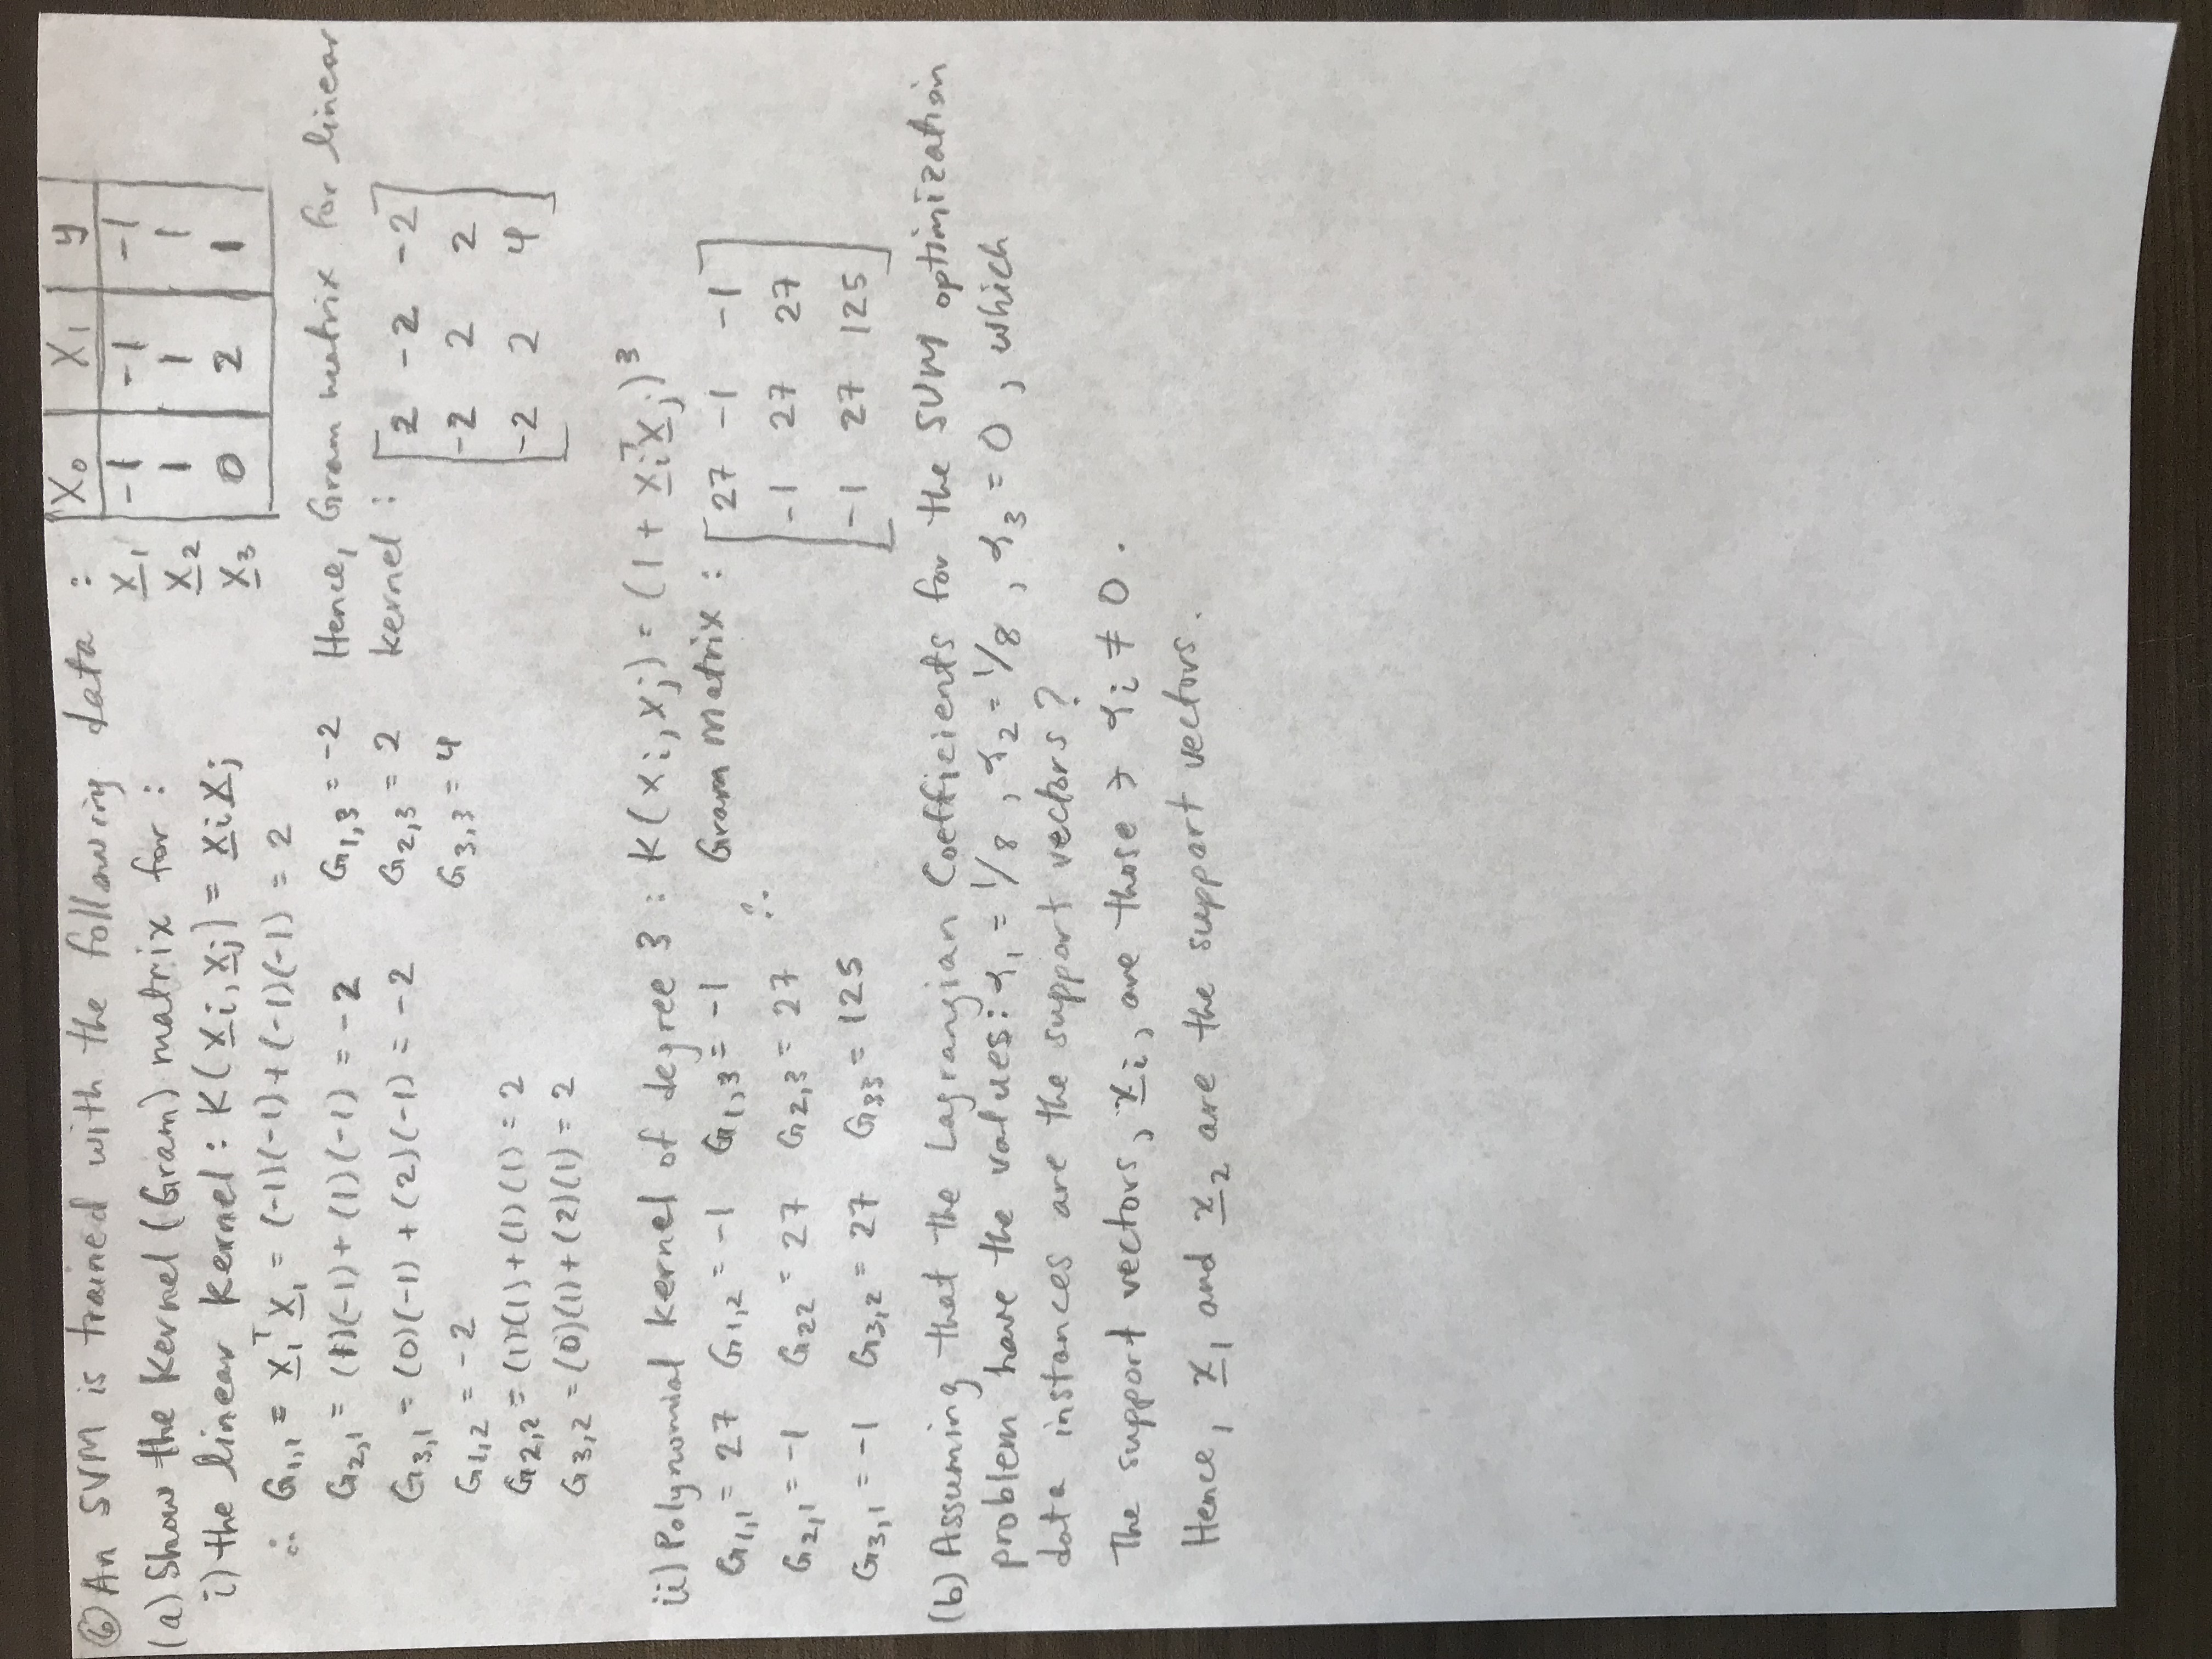 ⑥ An SVM is trained with the following data :
X₀ X₁ y
x₁ -1 -1 -1
x₂ 1 1 1
x₃ 0 2 1
(a) Show the Kernel (Gram) matrix for :
i) the linear Kernel : K(xi, xj) = xi xj
∴ G₁,₁ = x₁ᵀ x₁ = (-1)(-1) + (-1)(-1) = 2
G₂,₁ = (1)(-1) + (1)(-1) = -2
G₃,₁ = (0)(-1) + (2)(-1) = -2
G₁,₂ = -2
G₂,₂ = (1)(1) + (1)(1) = 2
G₃,₂ = (0)(1) + (2)(1) = 2
G₁,₃ = -2
G₂,₃ = 2
G₃,₃ = 4
Hence, Gram matrix for linear
kernel :
2 -2 -2
-2 2 2
-2 2 4
ii) Polynomial kernel of degree 3 : K(xi, xj) = (1 + xiᵀxj)³
G₁,₁ = 27 G₁,₂ = -1 G₁,₃ = -1
G₂,₁ = -1 G₂₂ = 27 G₂,₃ = 27
G₃,₁ = -1 G₃,₂ = 27 G₃₃ = 125
∴ Gram Matrix :
27 -1 -1
-1 27 27
-1 27 125
(b) Assuming that the Lagrangian Coefficients for the SVM optimization
problem have the values : α₁ = 1/8 , α₂ = 1/8 , α₃ = 0 , which
data instances are the support vectors ?
The support vectors, xi, are those ∋ αi ≠ 0 .
Hence, x₁ and x₂ are the support vectors .